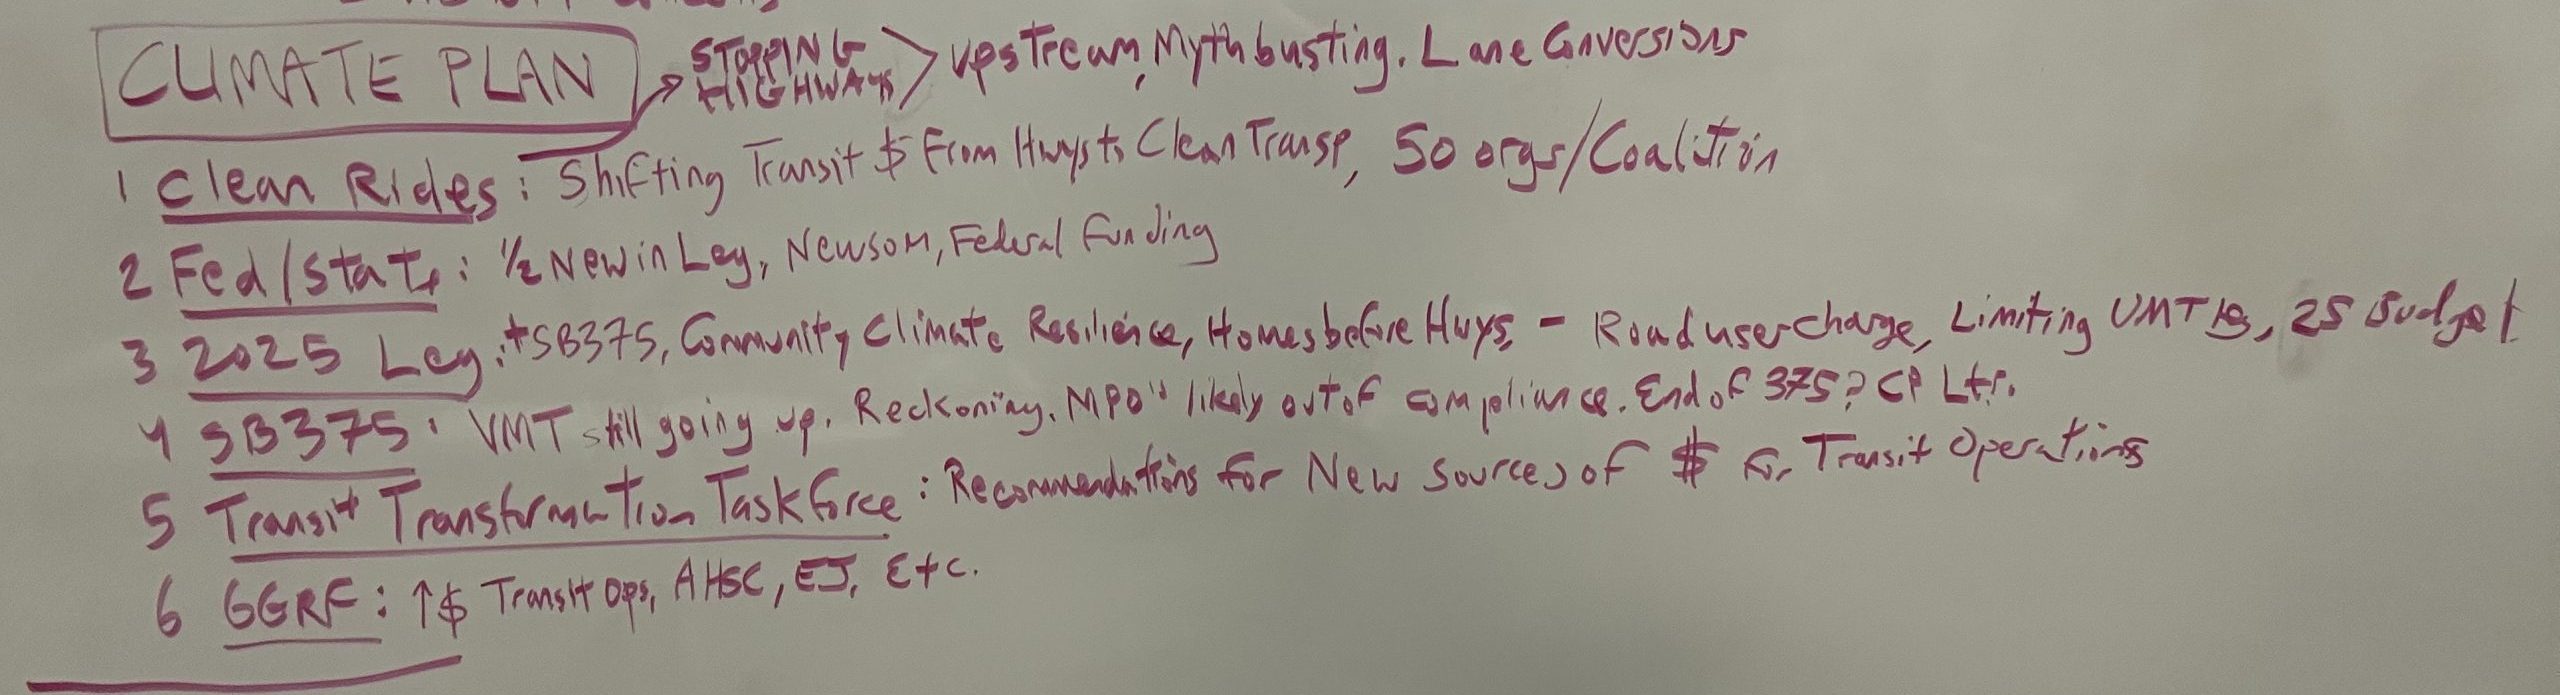 CLIMATE PLAN
STOPPING HIGHWAYS > Upstream, Mythbusting. Lane Conversions
1 Clean Rides: Shifting Transit $ From Hwys to Clean Transp, 50 orgs/Coalition
2 Fed/State: ½ New in Leg, Newsom, Federal Funding
3 2025 Leg: + SB375, Community Climate Resilience, Homes before Hwys, - Road user charge, Limiting VMT, 25 Budget
4 SB375: VMT still going up. Reckoning. MPO's likely out of compliance. End of 375? CP Ltr.
5 Transit Transformation Taskforce: Recommendations for New Sources of $ for Transit Operations
6 GGRF: ↑$ Transit Ops, AHSC, EJ, Etc.